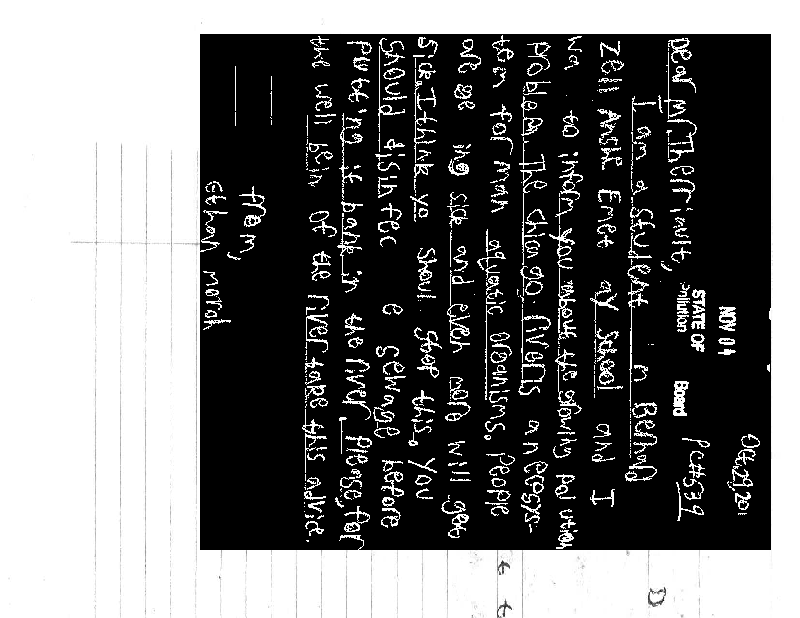 NOV 04
STATE OF
Pollution Board
Oct 29 201
PC#539
Dear Mr. Therriault,
I am a student n Behalf
Zell Anshe Emet ay school and I
wa to inform you about the growing pol ution
problem. The chicago rivers an ecosys-
tem for man aquatic organisms. People
are ge ing sick and even more will get
sick. I think yo shoul stop this. You
should disinfec e sewage before
putting it back in the river. Please, for
the well bein of the river take this advice.
from,
Ethan